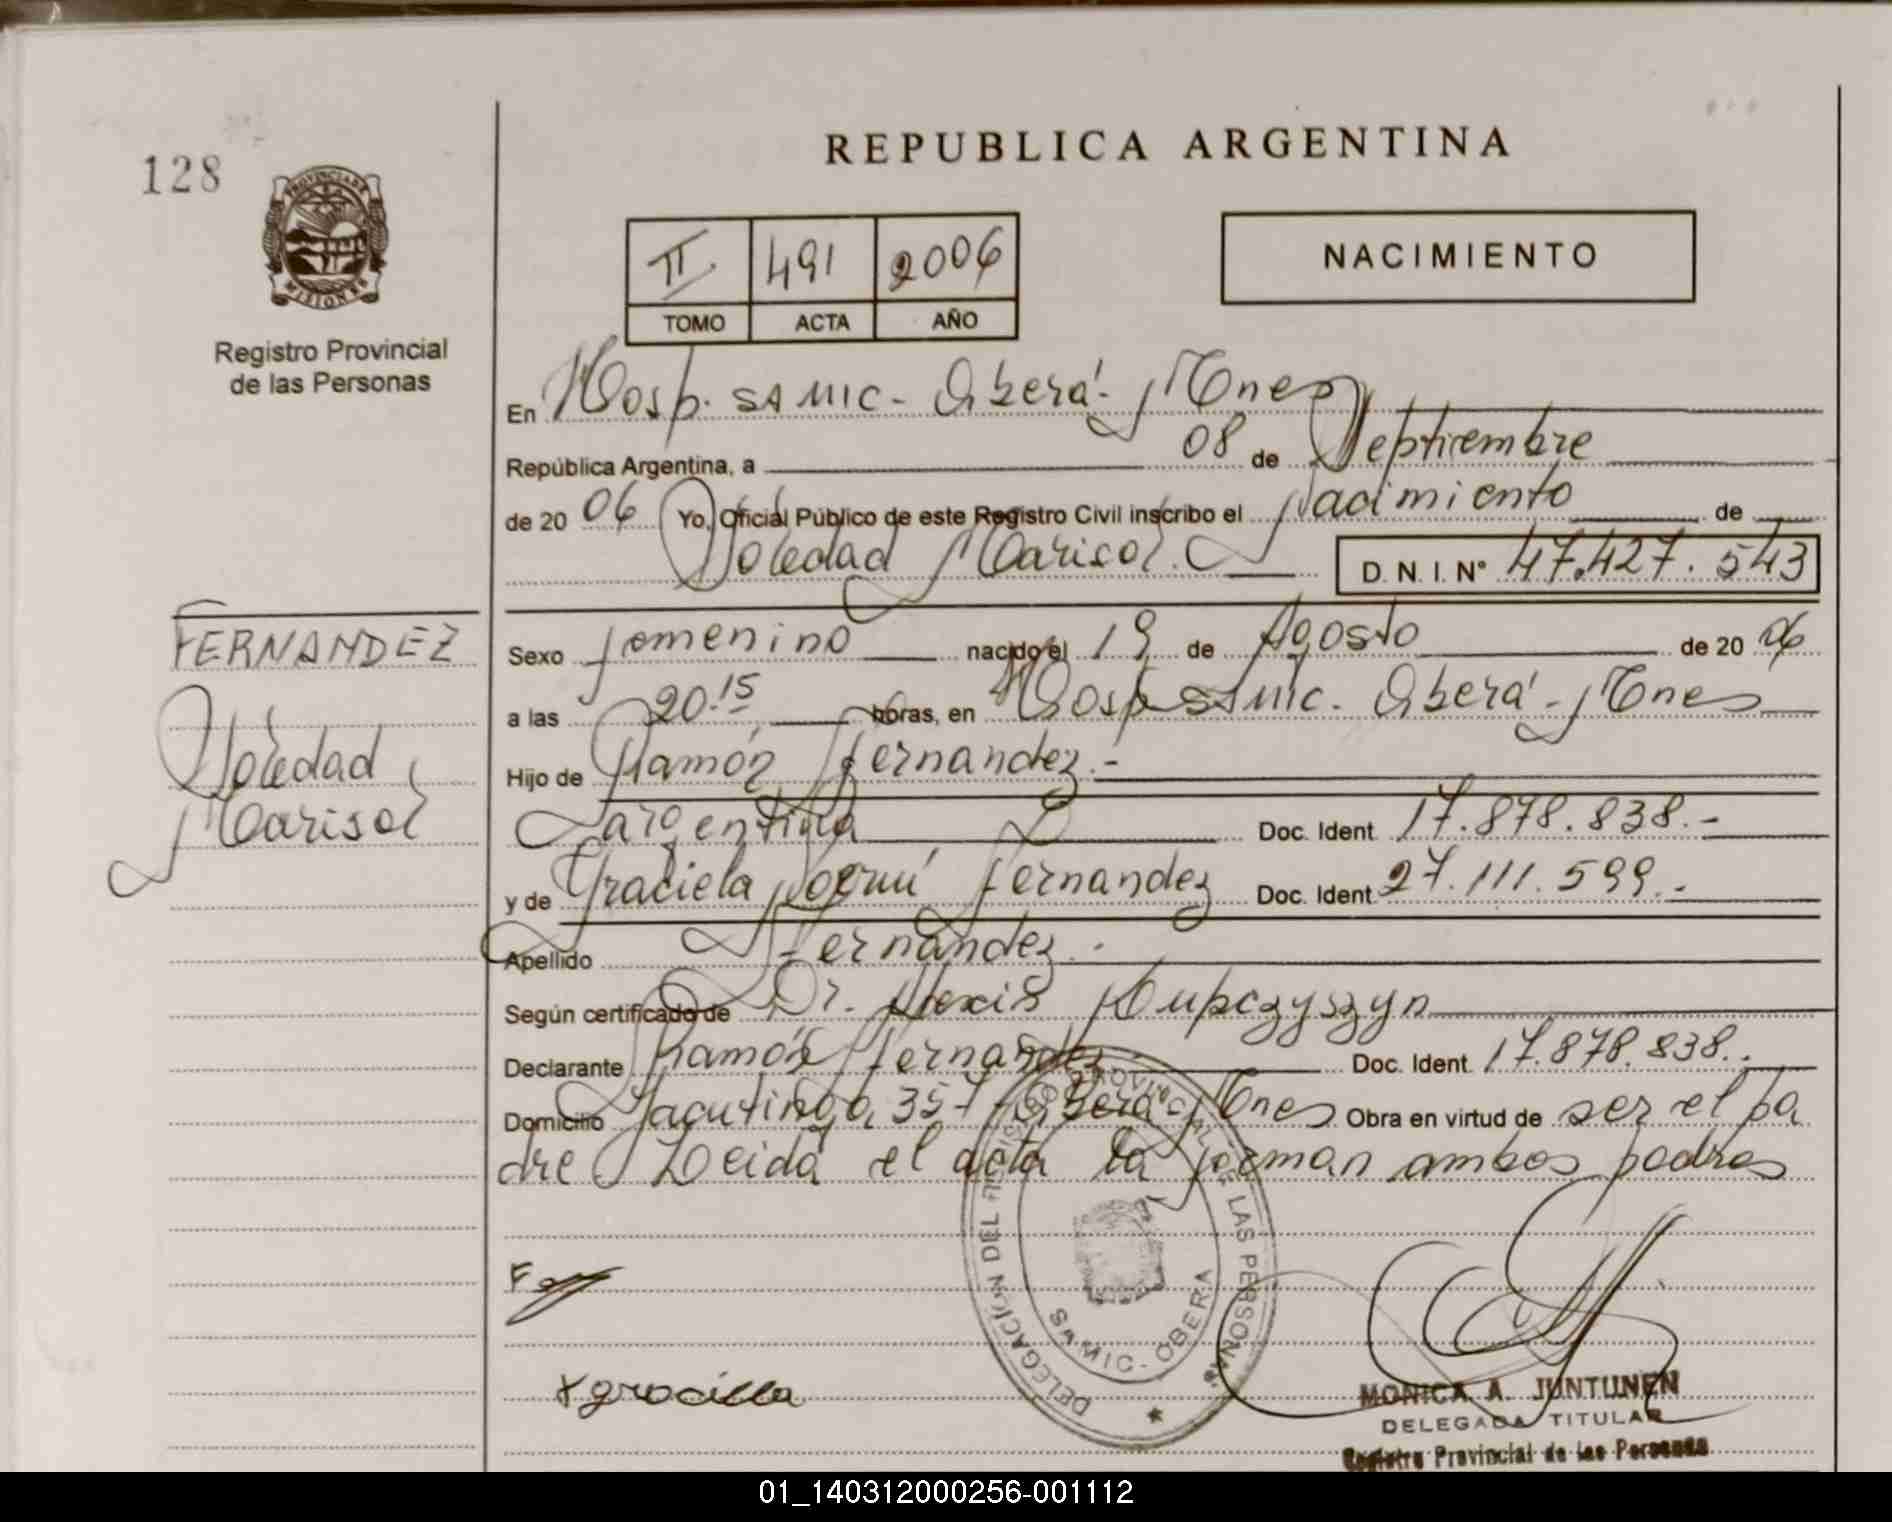 128
PROVINCIA DE
MISIONES
Registro Provincial
de las Personas
REPUBLICA ARGENTINA
II 491 2006
TOMO ACTA AÑO
NACIMIENTO
En Hosp. SAMIC - Oberá - Mnes
República Argentina, a 08 de Septiembre
de 20 06 Yo, Oficial Público de este Registro Civil inscribo el Nacimiento de
Soledad Marisol. D. N. I. Nº 47.427.543
FERNANDEZ
Soledad
Marisol
Sexo femenino nacido el 19 de Agosto de 20 06
a las 20.15 horas, en Hosp SAMIC. Oberá - Mnes
Hijo de Ramón Fernandez.-
argentina Doc. Ident. 17.878.838.-
y de Graciela Fernandez Doc. Ident. 27.111.599.-
Apellido Fernández.-
Según certificado de Dr. Alexis Kupczyszyn
Declarante Ramón Fernandez Doc. Ident. 17.878.838.-
Domicilio Yacutinga 357 Oberá Mnes Obra en virtud de ser el pa
dre Leida el acta la forman ambos padres
DELEGACIÓN DEL REGISTRO PROVINCIAL DE LAS PERSONAS
SAMIC - OBERA
graciela
MONICA A. JUNTUNEN
DELEGADA TITULAR
Registro Provincial de las Personas
01_140312000256-001112